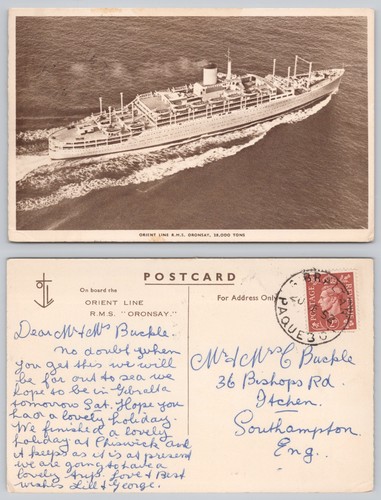 ORIENT LINE R.M.S. ORONSAY, 28,000 TONS
POSTCARD
On board the
ORIENT LINE
R.M.S. "ORONSAY."
For Address Only
PAQUEBO
Dear Mr & Mrs Buckle.
no doubt when
you get this we will
be far out to sea we
hope to be in Gibralta
tomorrow Sat. Hope you
had a lovely holiday.
We finished a lovely
holiday at Chiswick and
it keeps as it is at present
we are going to have a
lovely trip. Love & Best
wishes Lill & George.
Mr & Mrs C Buckle
36 Bishops Rd.
Itchen.
Southampton
Eng.